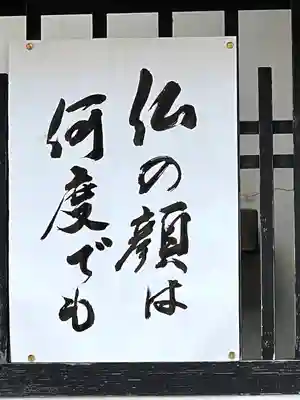 仏の顔は
何度でも